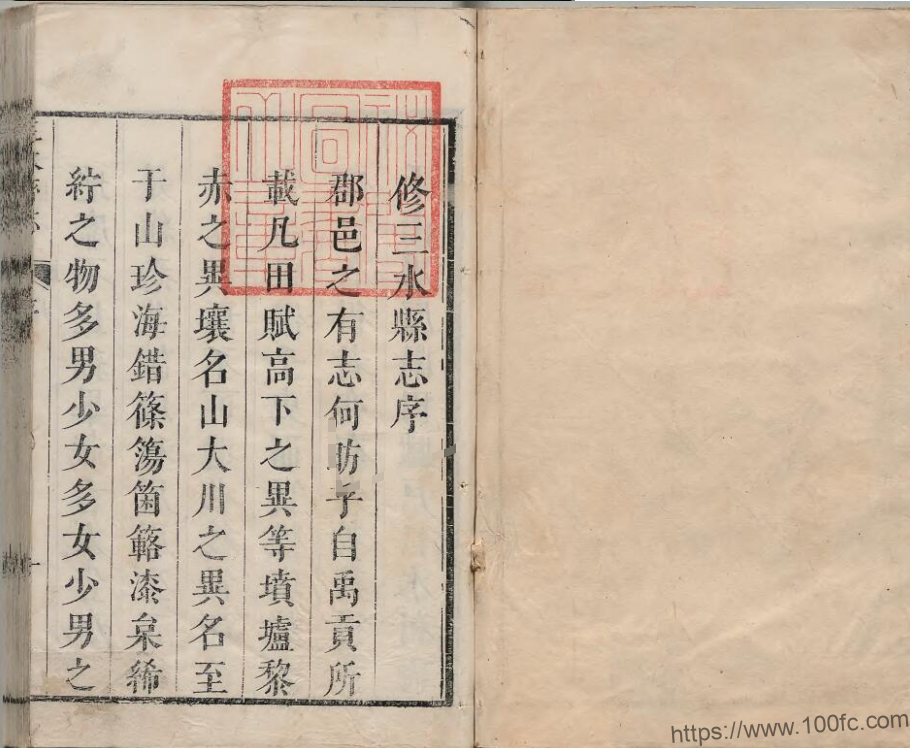 修三水縣志序
郡邑之有志何昉乎自禹貢所
載凡田賦高下之異等墳壚黎
赤之異壤名山大川之異名至
于山珍海錯篠簜箘簵漆枲絺
紵之物多男少女多女少男之
https://www.100fc.com